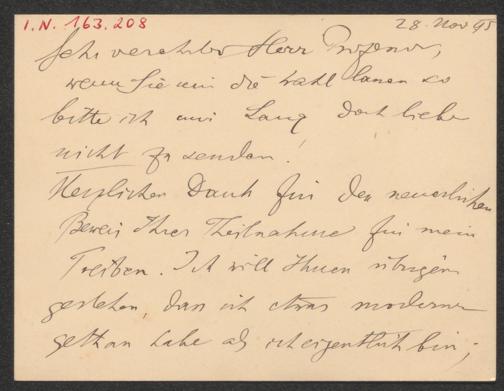 I.N. 163.208
28. Nov 95
Sehr verehrter Herr Professor,
wenn Sie mir die Wahl lassen so
bitte ich mir Lang doch lieber
nicht zu senden!
Herzlichen Dank für den neuerlichen
Beweis Ihrer Theilnahme für mein
Treiben. Ich will Ihnen übrigens
gestehen, dass ich etwas moderner
gethan habe als ich eigentlich bin;